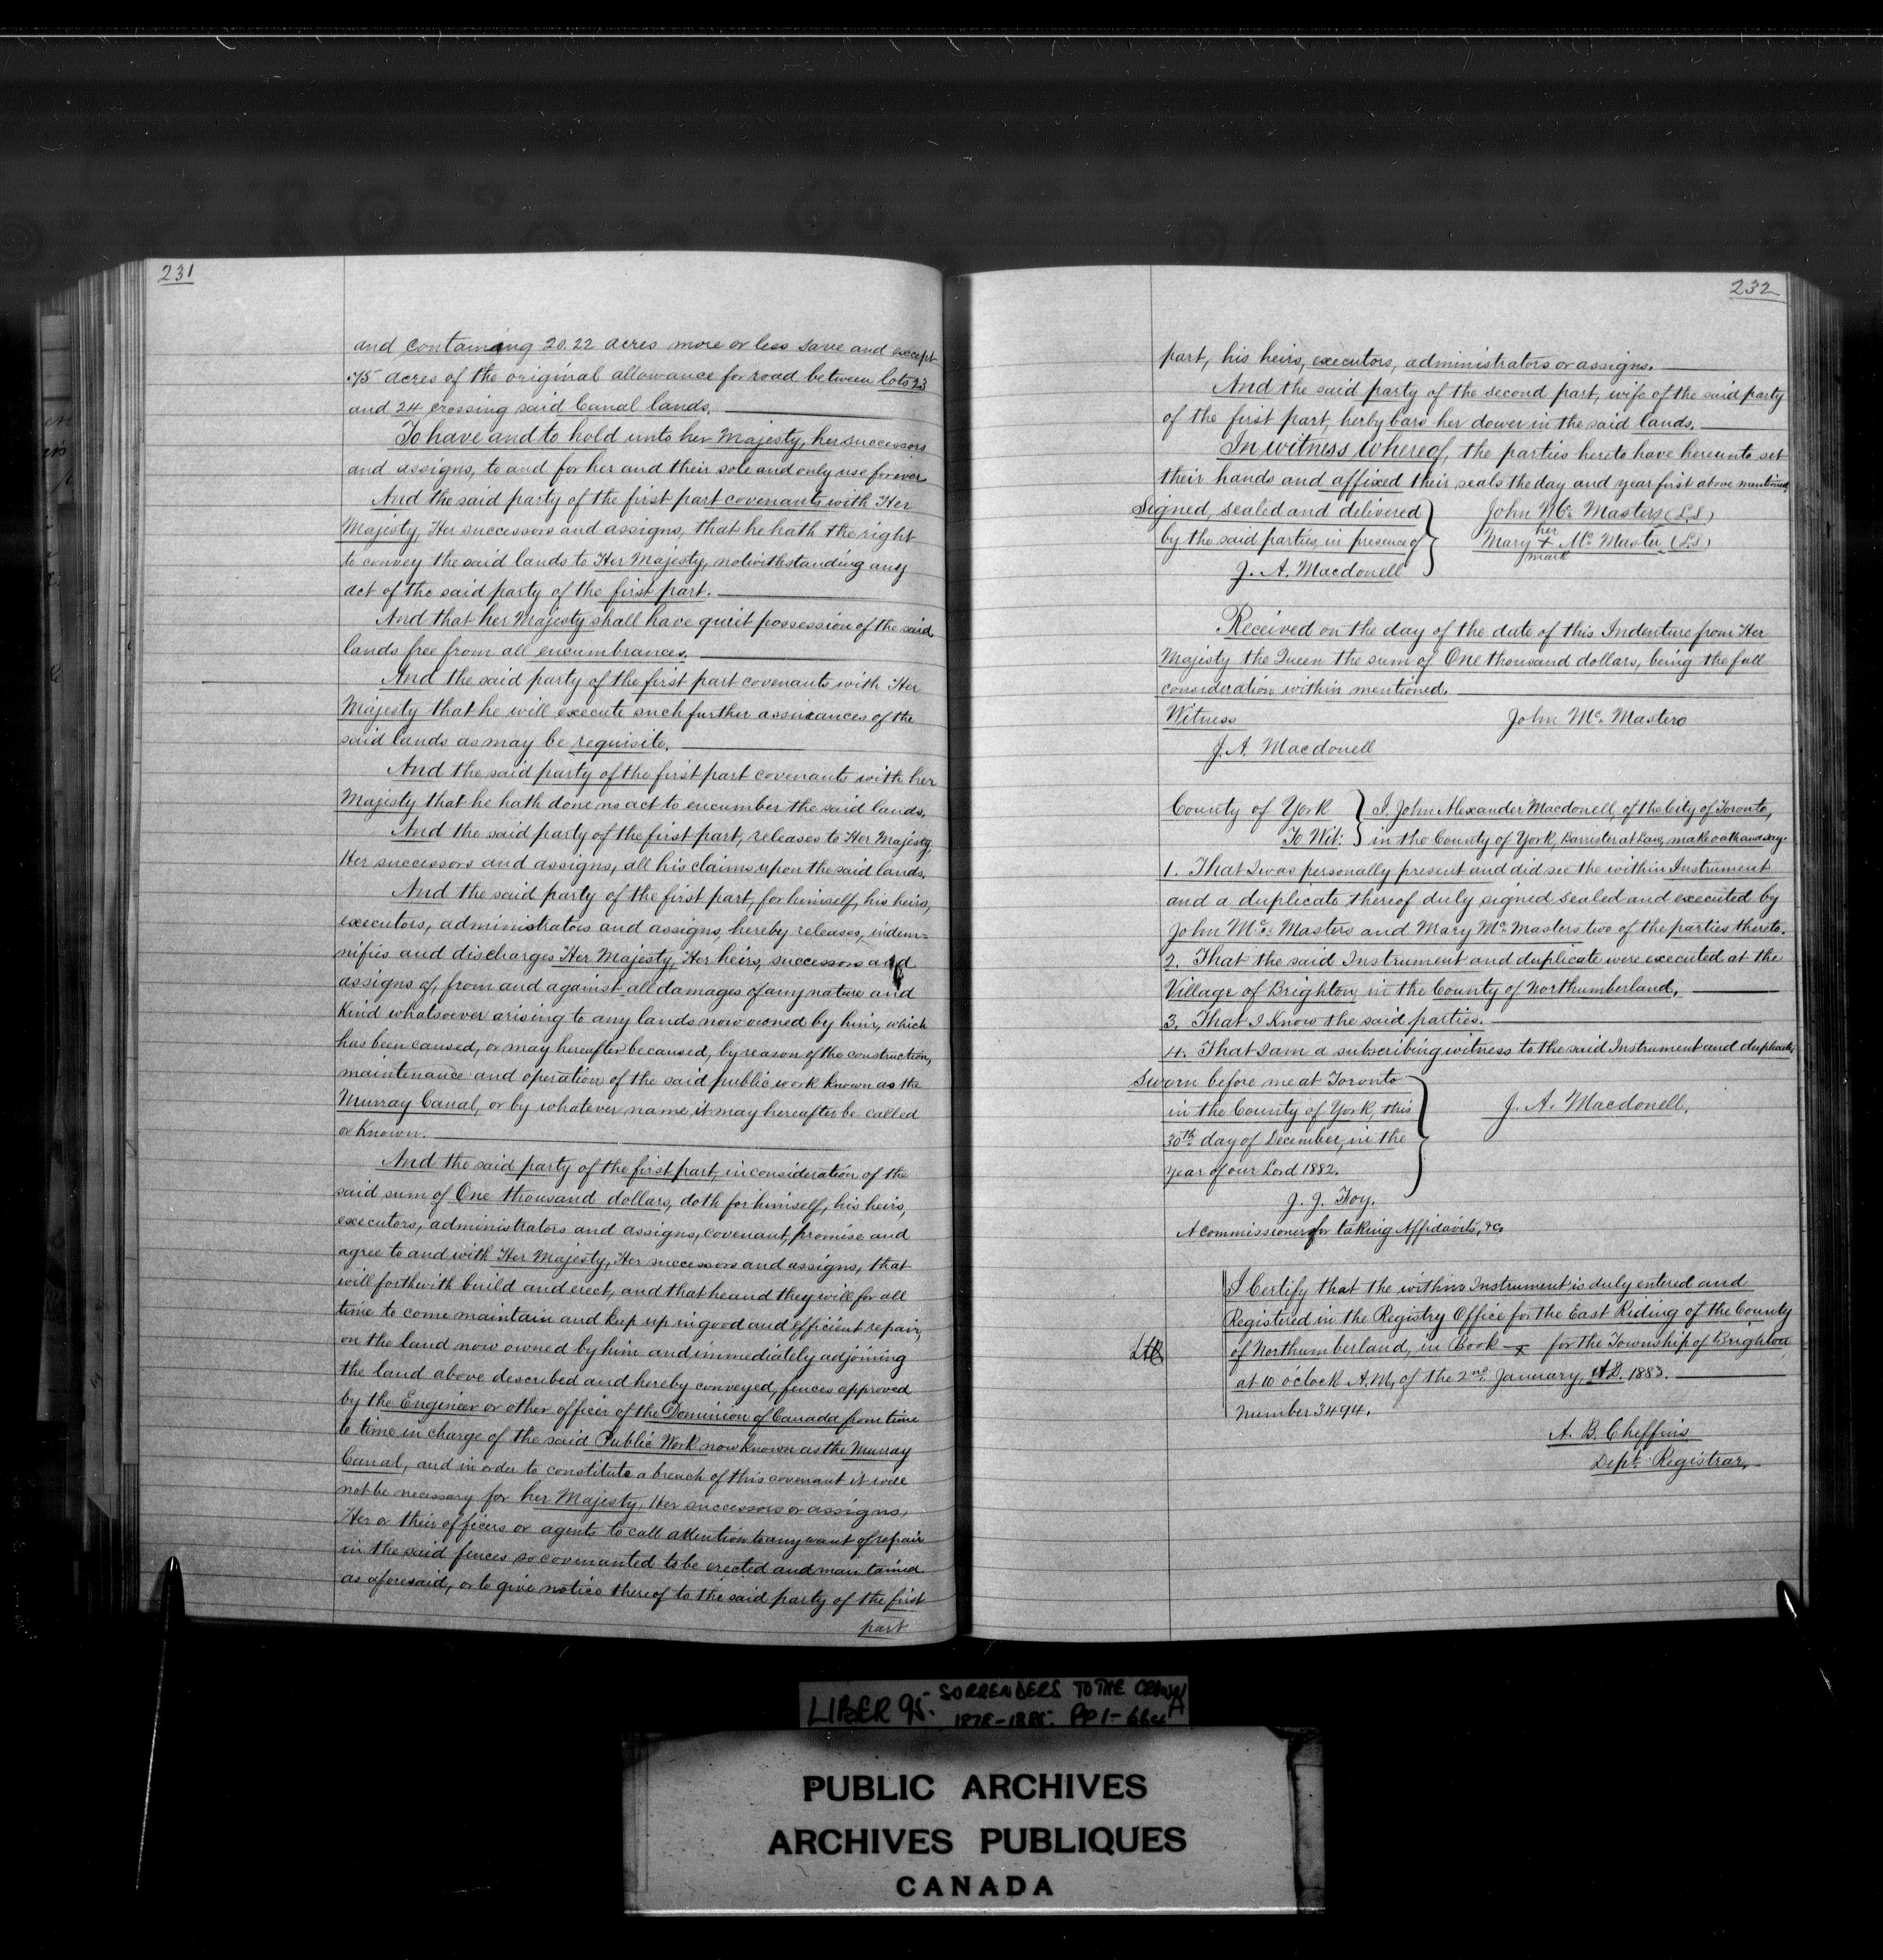 231
and containing 20.22 acres more or less save and except
.75 acres of the original allowance for road between lots 23
and 24 crossing said Canal lands.
To have and to hold unto her Majesty, her successors
and assigns, to and for her and their sole and only use forever
And the said party of the first part covenants with Her
Majesty, Her successors and assigns, that he hath the right
to convey the said lands to Her Majesty, notwithstanding any
act of the said party of the first part.
And that her Majesty shall have quiet possession of the said
lands free from all encumbrances.
And the said party of the first part covenants with Her
Majesty that he will execute such further assurances of the
said lands as may be requisite.
And the said party of the first part covenants with her
Majesty that he hath done no act to encumber the said lands.
And the said party of the first part, releases to Her Majesty,
Her successors and assigns, all his claims upon the said lands.
And the said party of the first part, for himself, his heirs,
executors, administrators and assigns, hereby releases, indem=
nifies and discharges Her Majesty, Her heirs, successors and
assigns of, from and against all damages of any nature and
Kind whatsoever arising to any lands now owned by him, which
has been caused, or may hereafter be caused, by reason of the construction,
maintenance and operation of the said public work known as the
Murray Canal, or by whatever name it may hereafter be called
or known.
And the said party of the first part, in consideration of the
said sum of One thousand dollars, doth for himself, his heirs,
executors, administrators and assigns, covenant, promise and
agree to and with Her Majesty, Her successors and assigns, that
will forthwith build and erect, and that he and they will for all
time to come maintain and keep up in good and efficient repair,
on the land now owned by him and immediately adjoining
the land above described and hereby conveyed, fences approved
by the Engineer or other officer of the Dominion of Canada from time
to time in charge of the said Public Work now known as the Murray
Canal, and in order to constitute a breach of this covenant it will
not be necessary for her Majesty, Her successors or assigns,
Her or their officers or agents to call attention to any want of repair
in the said fences so covenanted to be erected and maintained
as aforesaid, or to give notice thereof to the said party of the first
part
232
part, his heirs, executors, administrators or assigns.
And the said party of the second part, wife of the said party
of the first part, herby bars her dower in the said lands.
In witness whereof, the parties hereto have hereunto set
their hands and affixed their seals the day and year first above mentioned.
Signed, sealed and delivered
by the said parties, in presence of
J. A. Macdonell
John Mc. Masters (L.S)
her
Mary X Mc. Master (L.S)
mark
Received on the day of the date of this Indenture from Her
Majesty the Queen the sum of One thousand dollars, being the full
consideration within mentioned.
Witness
John Mc. Masters
J. A. Macdonell
County of York
To Wit:
I, John Alexander Macdonell, of the City of Toronto,
in the County of York, Barrister at Law, make oath and say.
1. That I was personally present and did see the within Instrument
and a duplicate thereof duly signed sealed and executed by
John Mc. Masters and Mary Mc. Masters two of the parties thereto.
2. That the said Instrument and duplicate were executed at the
Village of Brighton, in the County of Northumberland.
3. That I Know the said parties.
4. That I am a subscribing witness to the said Instrument and duplicate
Sworn before me at Toronto
in the County of York, this
30th day of December, in the
year of our Lord 1882.
J. A. Macdonell.
J. J. Foy.
A commissioner for taking Affidavits, &c
I Certify that the within Instrument is duly entered and
Registered in the Registry Office for the East Riding of the County
of Northumberland, in Book X for the Township of Brighton
at 10 o'clock A.M, of the 2nd January, A.D. 1883.
Number 3494.
A. B. Cheffins
Dept. Registrar.
LIBER 95. SORRENDERS TO THE CROWN
PUBLIC ARCHIVES
ARCHIVES PUBLIQUES
CANADA